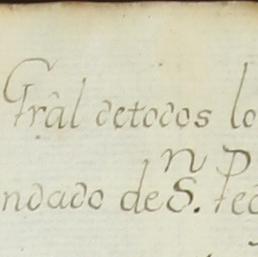 Grâl detodos lo
ndado de Sⁿ. Ped